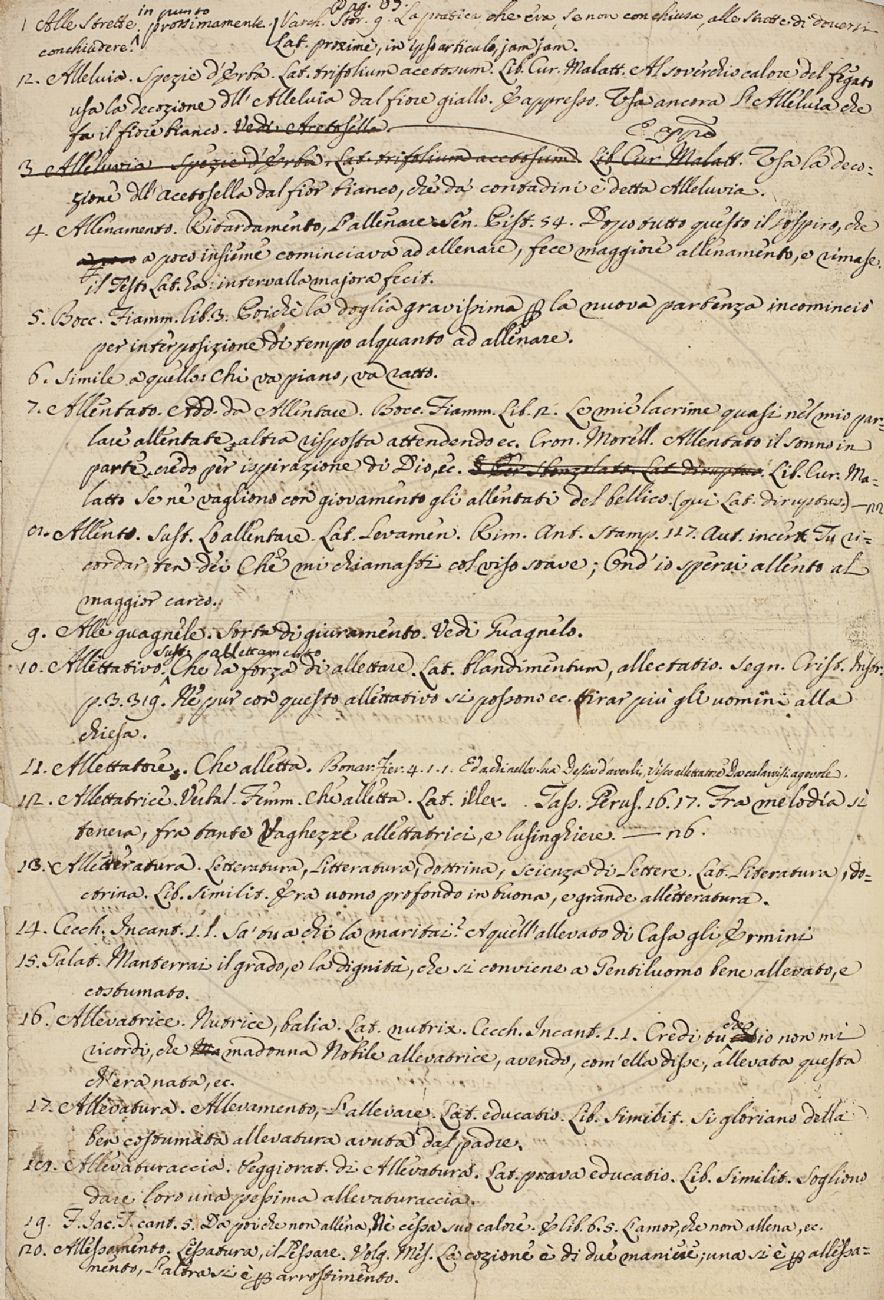 1 Alle Strette. in punto prossimamente. Varch. Stor. 9. La pratica che era, se non conchiusa, alle strette di doversi
conchiudere. Lat. proxime, in ipso articulo, jam jam.
2. Alleluia. Spezie d'Erba. Lat. trifolium acetosum. Lib. Cur. Malatt. Al soverchio calore del fegato
usa la decozione dell'Alleluia dal fiore giallo. E appresso. Usa ancora l'Alleluia che
fa il fiore bianco. Vedi Acetosella
3 Alleluvia Spezie d'Erba. Lat. trifolium acetosum. Lib. Cur. Malatt. Usa la deco-
zione dell'acetosella dal fior bianco, che da' contadini è detta Alleluvia.
4. Allenamento. Ritardamento, L'allenare. Sen. Pist. 54. Dopo tutto questo il sospiro, che
a poco insieme cominciava ad allenare, fece maggiore allenamento, e rimase.
il Test. Lat. ha: intervalla majora fecit.
5. Bocc. Fiamm. lib. 3. Poichè la doglia gravissima per la nuova partenza incominciò
per interposizione di tempo alquanto ad allenare.
6. Simile a quello: Chi va piano, va ratto.
7. Allentato. Add. da Allentare. Bocc. Fiamm. Lib. 2. Le mie lacrime quasi nel mio par-
lare allentate, altra risposta attendendo ec. Cron. Morell. Allentato il sonno in
parte, credo per ispirazione di Dio, ec. Lib. Cur. Ma-
latt. Se ne vagliono con giovamento gli allentati del bellico. (qui Lat. diruptus)
8. Allento. Sust. Lo allentare. Lat. Levamen. Rim. Ant. Stamp. 117. Aut. incert. Tu ri-
cordar ten dei Che mi chiamasti col viso soave; Ond'io sperai allento al
maggior carco.
9. Alle guagnele. Sorta di giuramento. Vedi Guagnelo.
10. Allettativo. Sust. allettamento Che ha forza di allettare. Lat. blandimentum, allectatio. Segn. Crist. Instr.
p. 3. 319. Nè pur con questo allettativo si possono ec. tirar più gli uomini alla
chiesa.
11. Allettatore. Che alletta. Bonar. Fier. 4. 1. 1.
12. Allettatrice. Verbal. Femm. Che alletta. Lat. illex. Tass. Gerus. 16. 17. Fra melodia sì
tenera, fra tante Vaghezze allettatrici, e lusinghiere.
13. Alletteratura. Letteratura, Litteratura, dottrina, scienza di Lettere. Lat. Literatura, do-
ctrina. Lib. Similit. Era uomo profondo in buona, e grande alletteratura.
14. Cecch. Incant. 1. 1. Sa' tu a chi la maritai? A quell'allevato di Casa gli Ermini
15. Galat. Manterrai il grado, e la dignità, che si conviene a Gentiluomo bene allevato, e
costumato.
16. Allevatrice. Nutrice, balia. Lat. nutrix. Cecch. Incant. 1. 1. Credi tu che io non mi
ricordi, che madonna Nobile allevatrice, avendo, com'ella disse, allevata questa
ch'era nata, ec.
17. Allevatura. Allevamento, L'allevare. Lat. educatio. Lib. Similit. Si gloriano della
ben costumata allevatura avuta dal padre.
18. Allevaturaccia. Peggiorat. di Allevatura. Lat. prava educatio. Lib. Similit. Sogliono
dare loro una pessima allevaturaccia.
19. F. Jac. T. cant. 5. Da poi che non allena, Nè cessa suo calore. E lib. 6. 5. L'amor, che non allena, ec.
20. Allessamento. Lessatura, il Lessare. Volg. Mes. La cozione è di due maniere; una si è per allessa-
mento, l'altra si è per arrostimento.